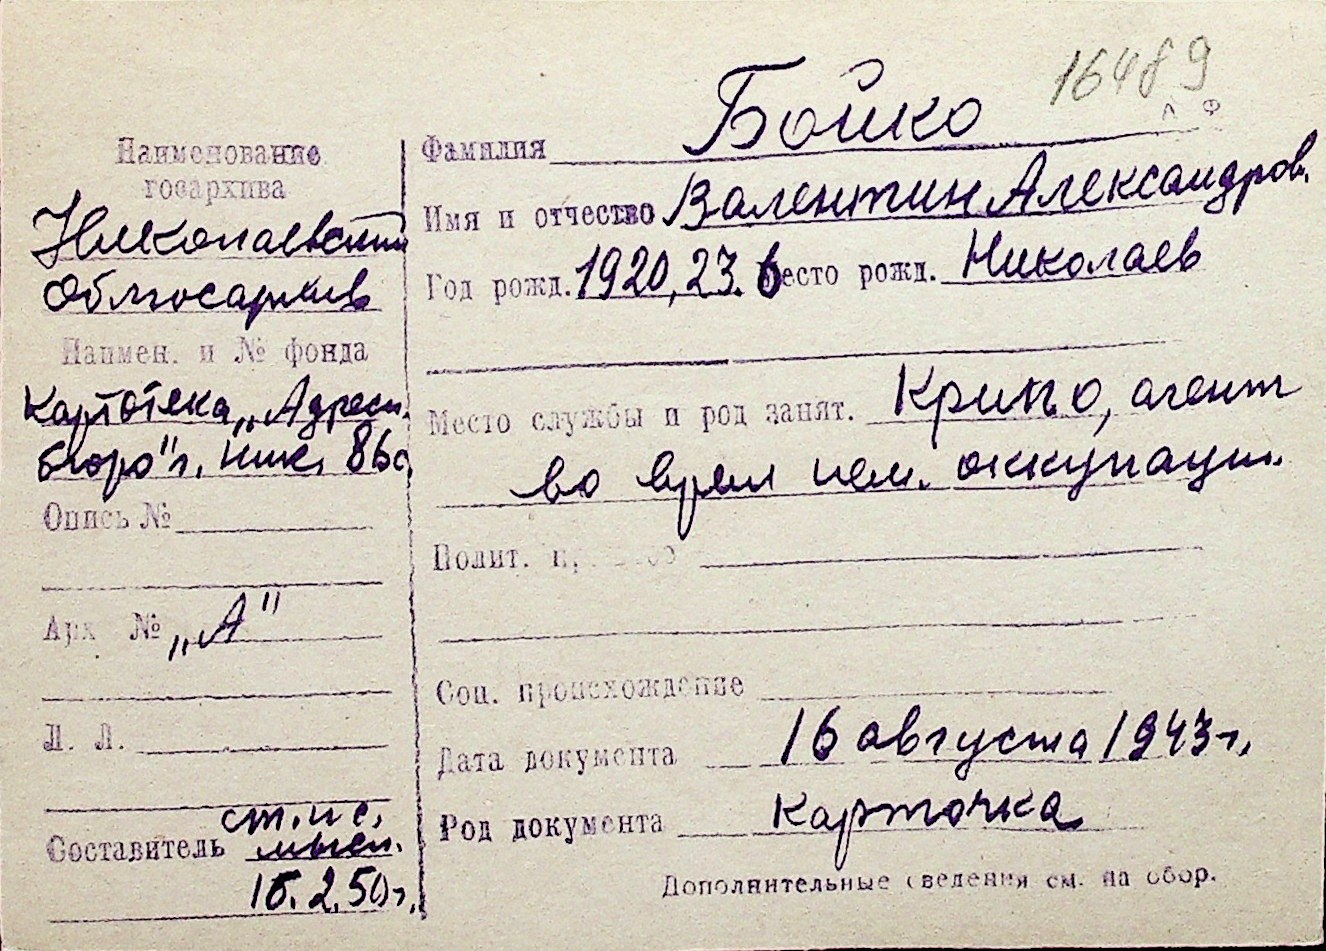 16489
Наименование
госархива
Николаевский
Облгосархив
Наимен. и № фонда
Картотека „Адресн.
бюро" г. Ник.
Опись №
Арх №
„А"
Л. Л.
Составитель
ст. ис.
15.2.50 г.
Фамилия Бойко
Имя и отчество Валентин Александров.
Год рожд. 1920, 23. 6 место рожд. Николаев
Место службы и род занят. Крипо, агент
во время нем. оккупации.
Полит.
Соц. происхождение
Дата документа 16 августа 1943 г.
Род документа карточка
Дополнительные сведения см. на обор.